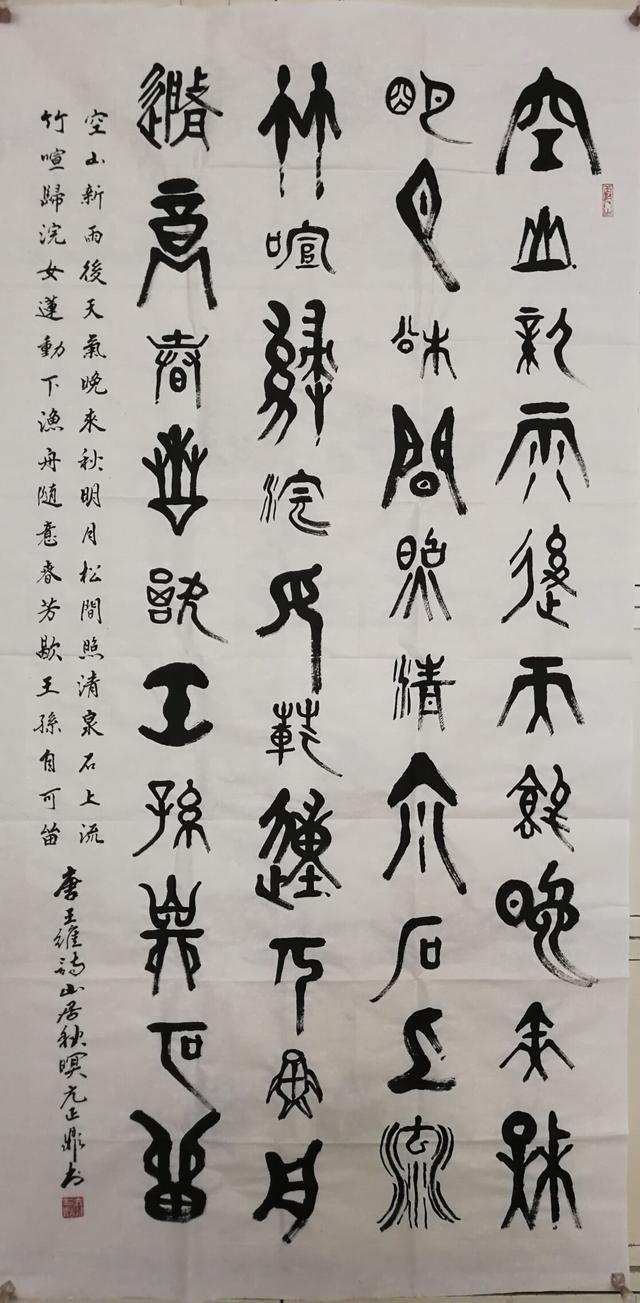 空山新雨後天氣晚來秋
明月松間照清泉石上流
竹喧歸浣女蓮動下漁舟
隨意春芳歇王孫自可留
空山新雨後天氣晚來秋明月松間照清泉石上流
竹喧歸浣女蓮動下漁舟隨意春芳歇王孫自可留
唐王維詩山居秋暝元正鼎书